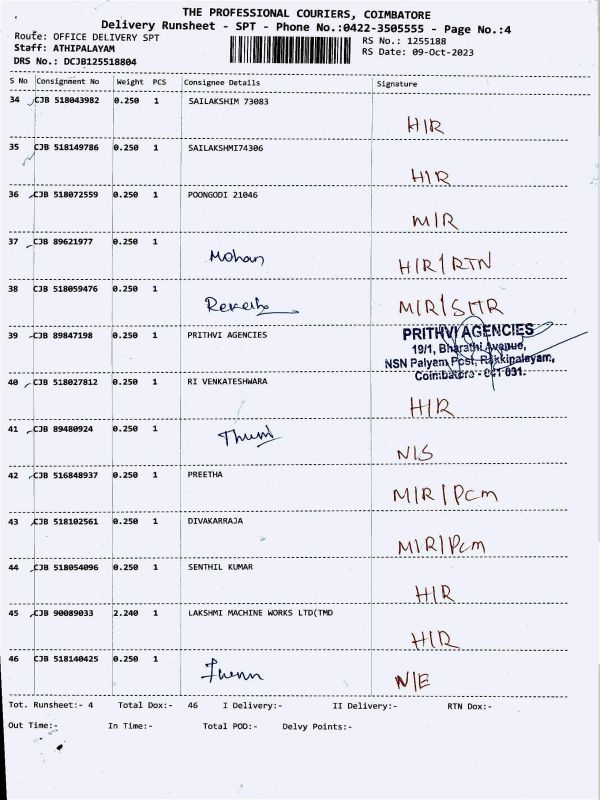 THE PROFESSIONAL COURIERS, COIMBATORE
Delivery Runsheet - SPT - Phone No.:0422-3505555 - Page No.:4
Route: OFFICE DELIVERY SPT RS No.: 1255188
Staff: ATHIPALAYAM RS Date: 09-Oct-2023
DRS No.: DCJB125518804
S No Consignment No Weight PCS Consignee Details Signature
34 CJB 518043982 0.250 1 SAILAKSHIM 73083
H/R
35 CJB 518149786 0.250 1 SAILAKSHMI74306
H/R
36 CJB 518072559 0.250 1 POONGODI 21046
M/R
37 CJB 89621977 0.250 1
Mohan H/R/RTN
38 CJB 518059476 0.250 1
M/R/SMR
39 CJB 89847198 0.250 1 PRITHVI AGENCIES
PRITHVI AGENCIES
19/1, Bharathi Avenue,
NSN Palyam Post, Rakkipalayam,
Coimbatore - 641 031.
40 CJB 518027812 0.250 1 RI VENKATESHWARA
H/R
41 CJB 89480924 0.250 1
N/S
42 CJB 516848937 0.250 1 PREETHA
M/R/Pcm
43 CJB 518102561 0.250 1 DIVAKARRAJA
M/R/Pcm
44 CJB 518054096 0.250 1 SENTHIL KUMAR
H/R
45 CJB 90089033 2.240 1 LAKSHMI MACHINE WORKS LTD(TMD
H/R
46 CJB 518140425 0.250 1
N/E
Tot. Runsheet:- 4 Total Dox:- 46 I Delivery:- II Delivery:- RTN Dox:-
Out Time:- In Time:- Total POD:- Delvy Points:-